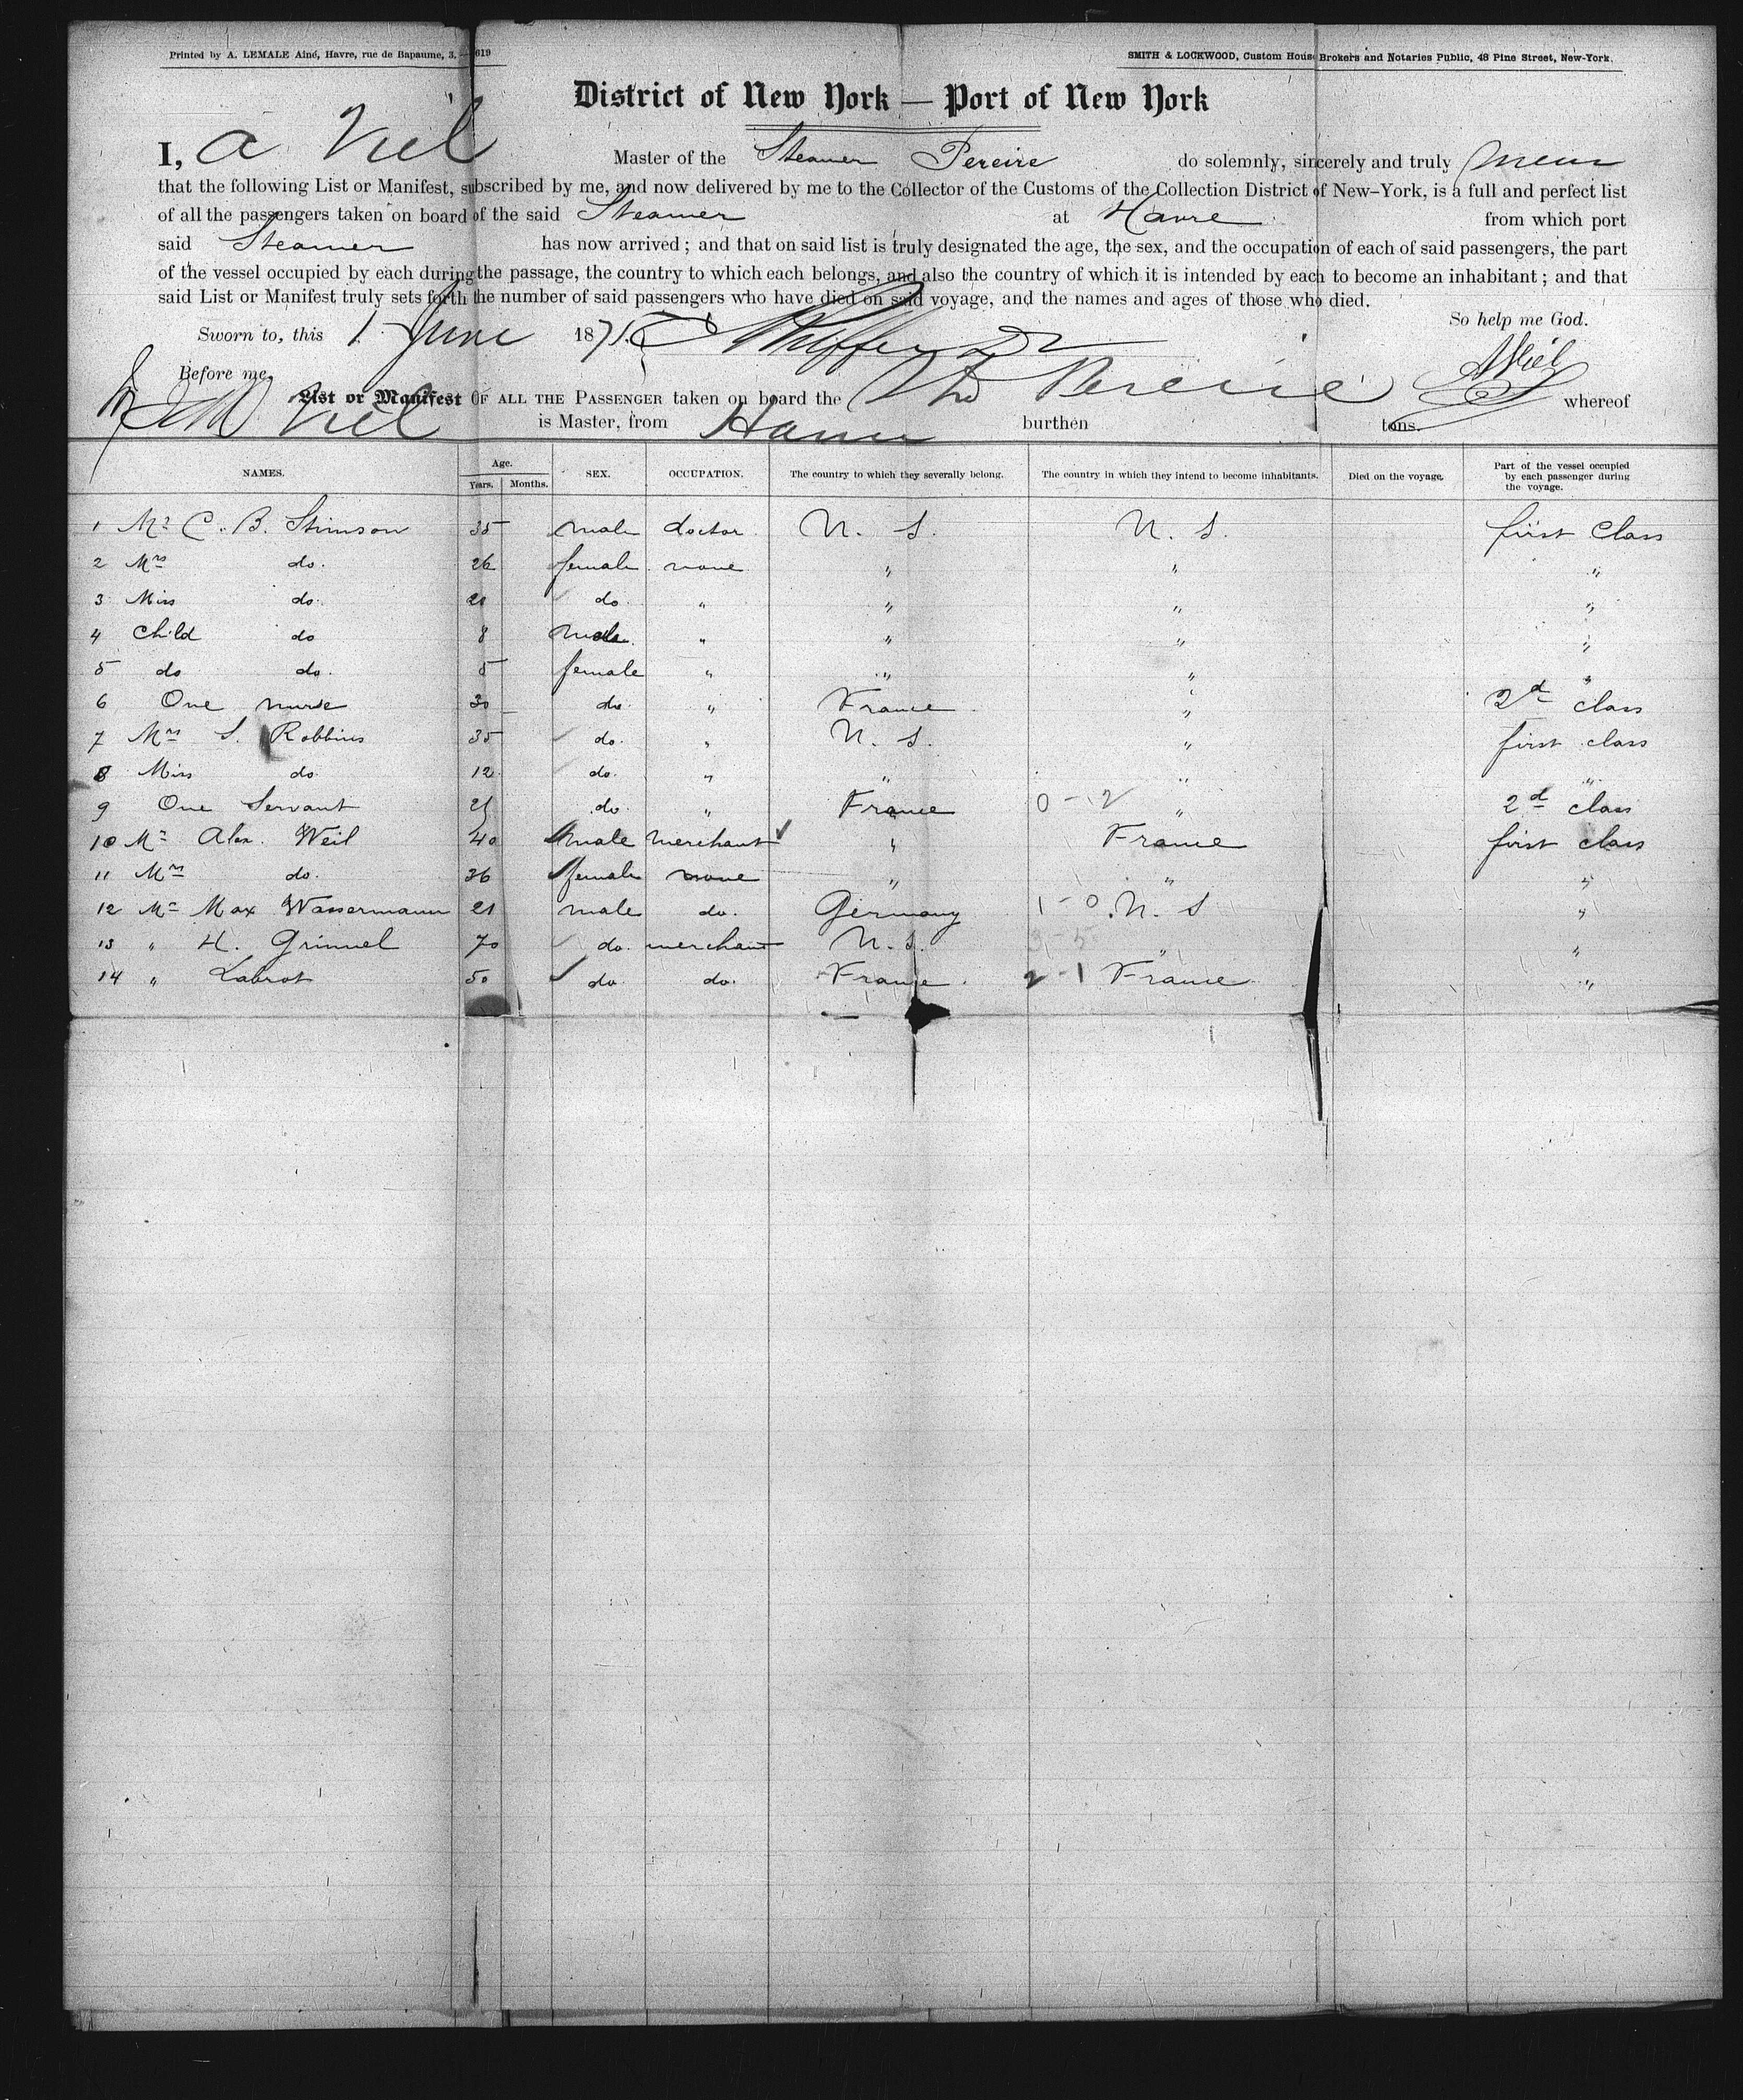 Printed by A. LEMALE Ainé, Havre, rue de Bapaume, 3. — 619 SMITH & LOCKWOOD, Custom House Brokers and Notaries Public, 48 Pine Street, New-York.
District of New York — Port of New York
I, A Viel Master of the Steamer Pereire do solemnly, sincerely and truly swear
that the following List or Manifest, subscribed by me, and now delivered by me to the Collector of the Customs of the Collection District of New-York, is a full and perfect list
of all the passengers taken on board of the said Steamer at Havre from which port
said Steamer has now arrived; and that on said list is truly designated the age, the sex, and the occupation of each of said passengers, the part
of the vessel occupied by each during the passage, the country to which each belongs, and also the country of which it is intended by each to become an inhabitant; and that
said List or Manifest truly sets forth the number of said passengers who have died on said voyage, and the names and ages of those who died.
So help me God.
Sworn to, this 1 June 1875
AViel
Before me,
List or Manifest OF ALL THE PASSENGER taken on board the Pereire whereof
Viel is Master, from Havre burthen tons.
NAMES. Age. Years. Months. SEX. OCCUPATION. The country to which they severally belong. The country in which they intend to become inhabitants. Died on the voyage. Part of the vessel occupied by each passenger during the voyage.
1 Mr C. B. Stimson 35 male doctor U. S. U. S. first Class
2 Mrs do. 26 female none " " "
3 Miss do. 21 do. " " " "
4 Child do 8 male " " " "
5 do do. 5 female " " " "
6 One nurse 30 do. " France " 2d class
7 Mrs S. Robbins 35 do. " U. S. " first class
8 Miss do. 12 do. " " " "
9 One Servant 25 do. " France 0-2 " 2d class
10 Mr Alex. Weil 40 male merchant " France first class
11 Mrs do. 36 female none " " "
12 Mr Max Wassermann 21 male do. Germany 1-0 U. S "
13 " H. Grinnel 70 do. merchant U. S. 3-5 " "
14 " Labrot 50 do do. France 2-1 France "